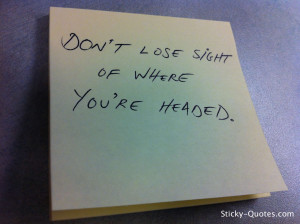 DON'T LOSE SIGHT
OF WHERE
YOU'RE HEADED.
Sticky-Quotes.com